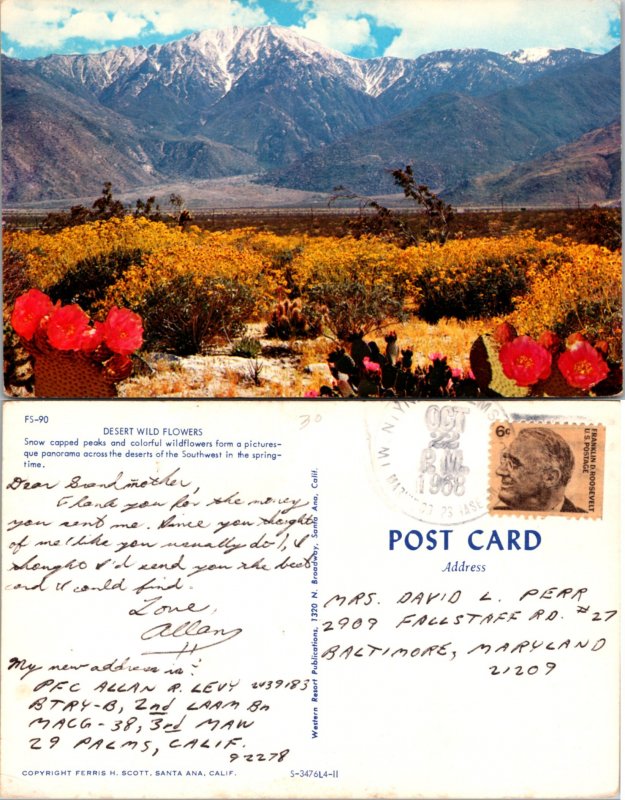 FS-90
DESERT WILD FLOWERS
Snow capped peaks and colorful wildflowers form a pictures-
que panorama across the deserts of the Southwest in the spring-
time.
Dear Grandmother,
Thank you for the money
you sent me. Since you thought
of me (like you usually do!), I
thought I'd send you the best
card I could find.
Love,
Allan
My new address is:
PFC ALLAN R. LEVY 2439183
BTRY-B, 2nd LAAM Bn
MACG-38, 3rd MAW
29 PALMS, CALIF.
92278
COPYRIGHT FERRIS H. SCOTT, SANTA ANA, CALIF.
S-3476L4-11
Western Resort Publications, 1320 N. Broadway, Santa Ana, Calif.
30
OCT
22
P.M.
1968
6¢
FRANKLIN D. ROOSEVELT
U.S. POSTAGE
POST CARD
Address
MRS. DAVID L. PERR
2909 FALLSTAFF RD. #27
BALTIMORE, MARYLAND
21209